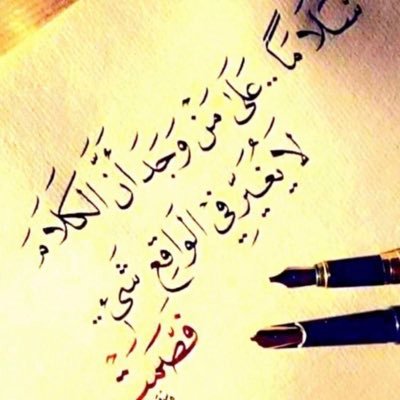 سَلَامًا.. عَلَىٰ مَنْ وَجَدَ أَنَّ الْكَلَامَ
لَا يُغَيِّرُ فِي الْوَاقِعِ شَيْء..
فَصَمَتَ